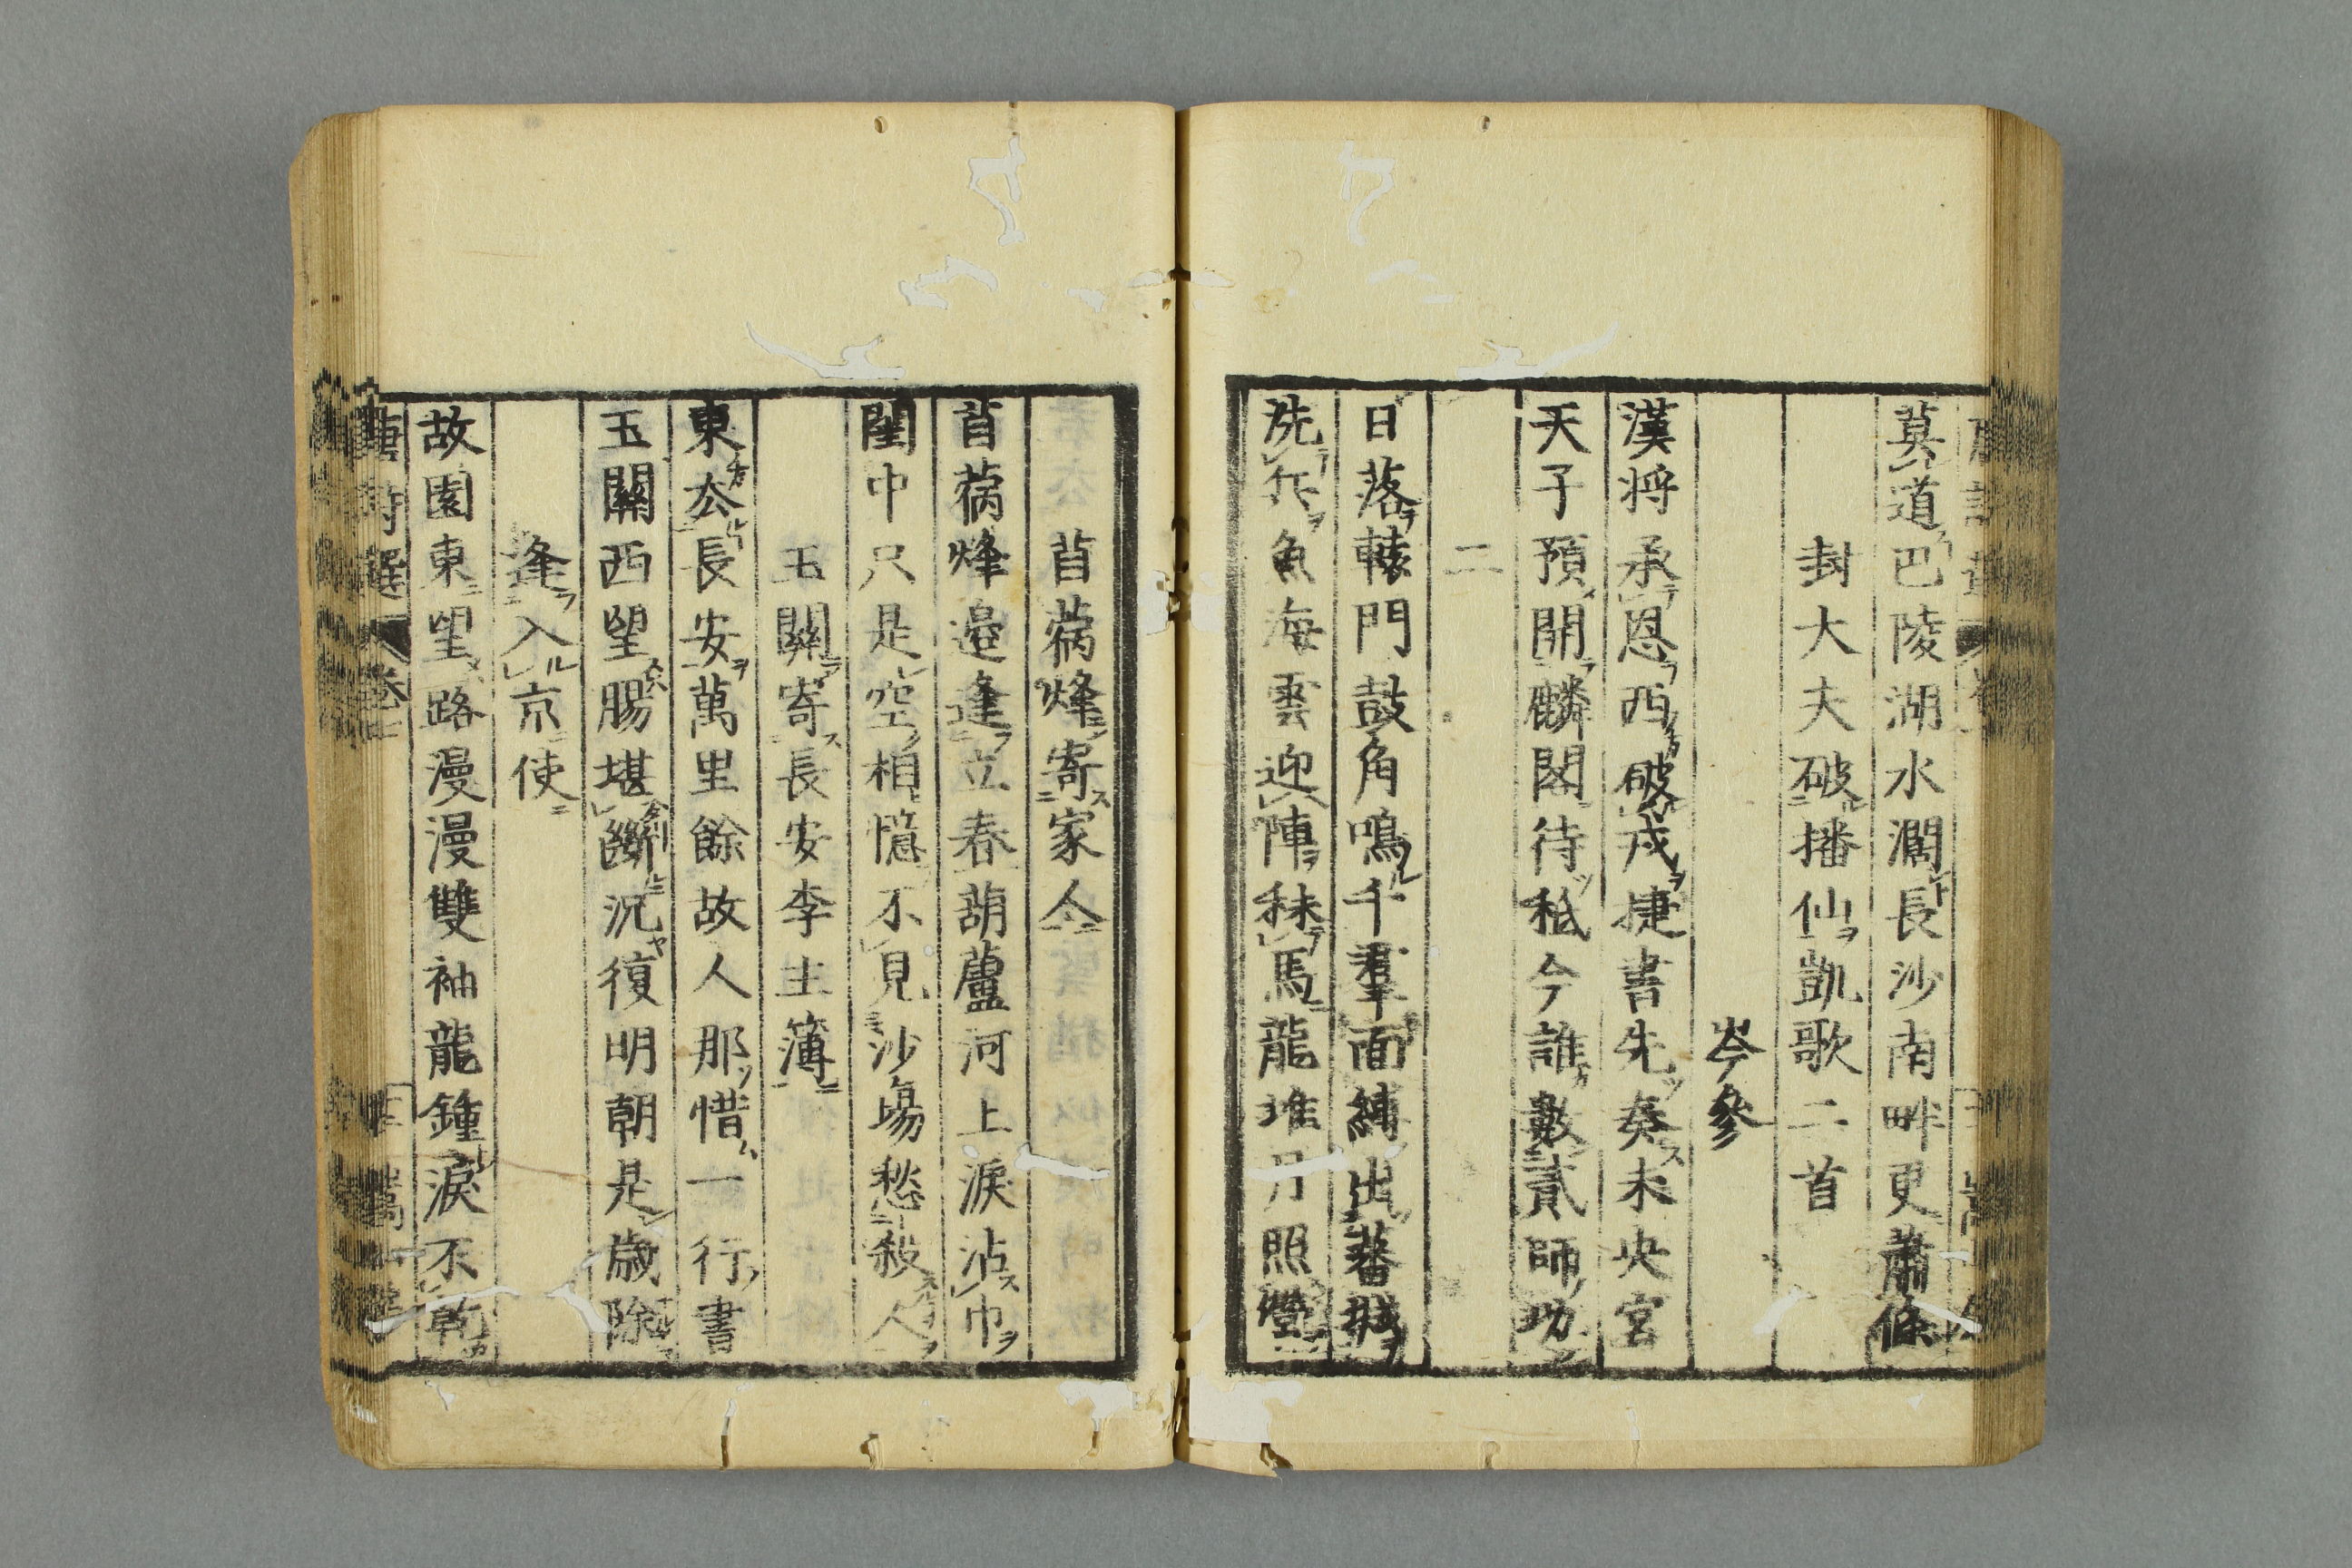 莫道巴陵湖水濶長沙南畔更蕭條
封大夫破播仙凱歌二首
岑參
漢将承恩西破戎捷書先奏未央宮
天子預開麟閣待秪今誰數貳師功
二
日落轅門鼓角鳴千羣面縛出蕃城
洗兵魚海雲迎陣秣馬龍堆月照營
苜蓿烽寄家人
苜蓿烽邉逢立春葫蘆河上淚沾巾
閨中只是空相憶不見沙場愁殺人
玉關寄長安李主簿
東去長安萬里餘故人那惜一行書
玉關西望腸堪斷況復明朝是歲除
逢入京使
故園東望路漫漫雙袖龍鍾淚不乾
唐詩選 卷七